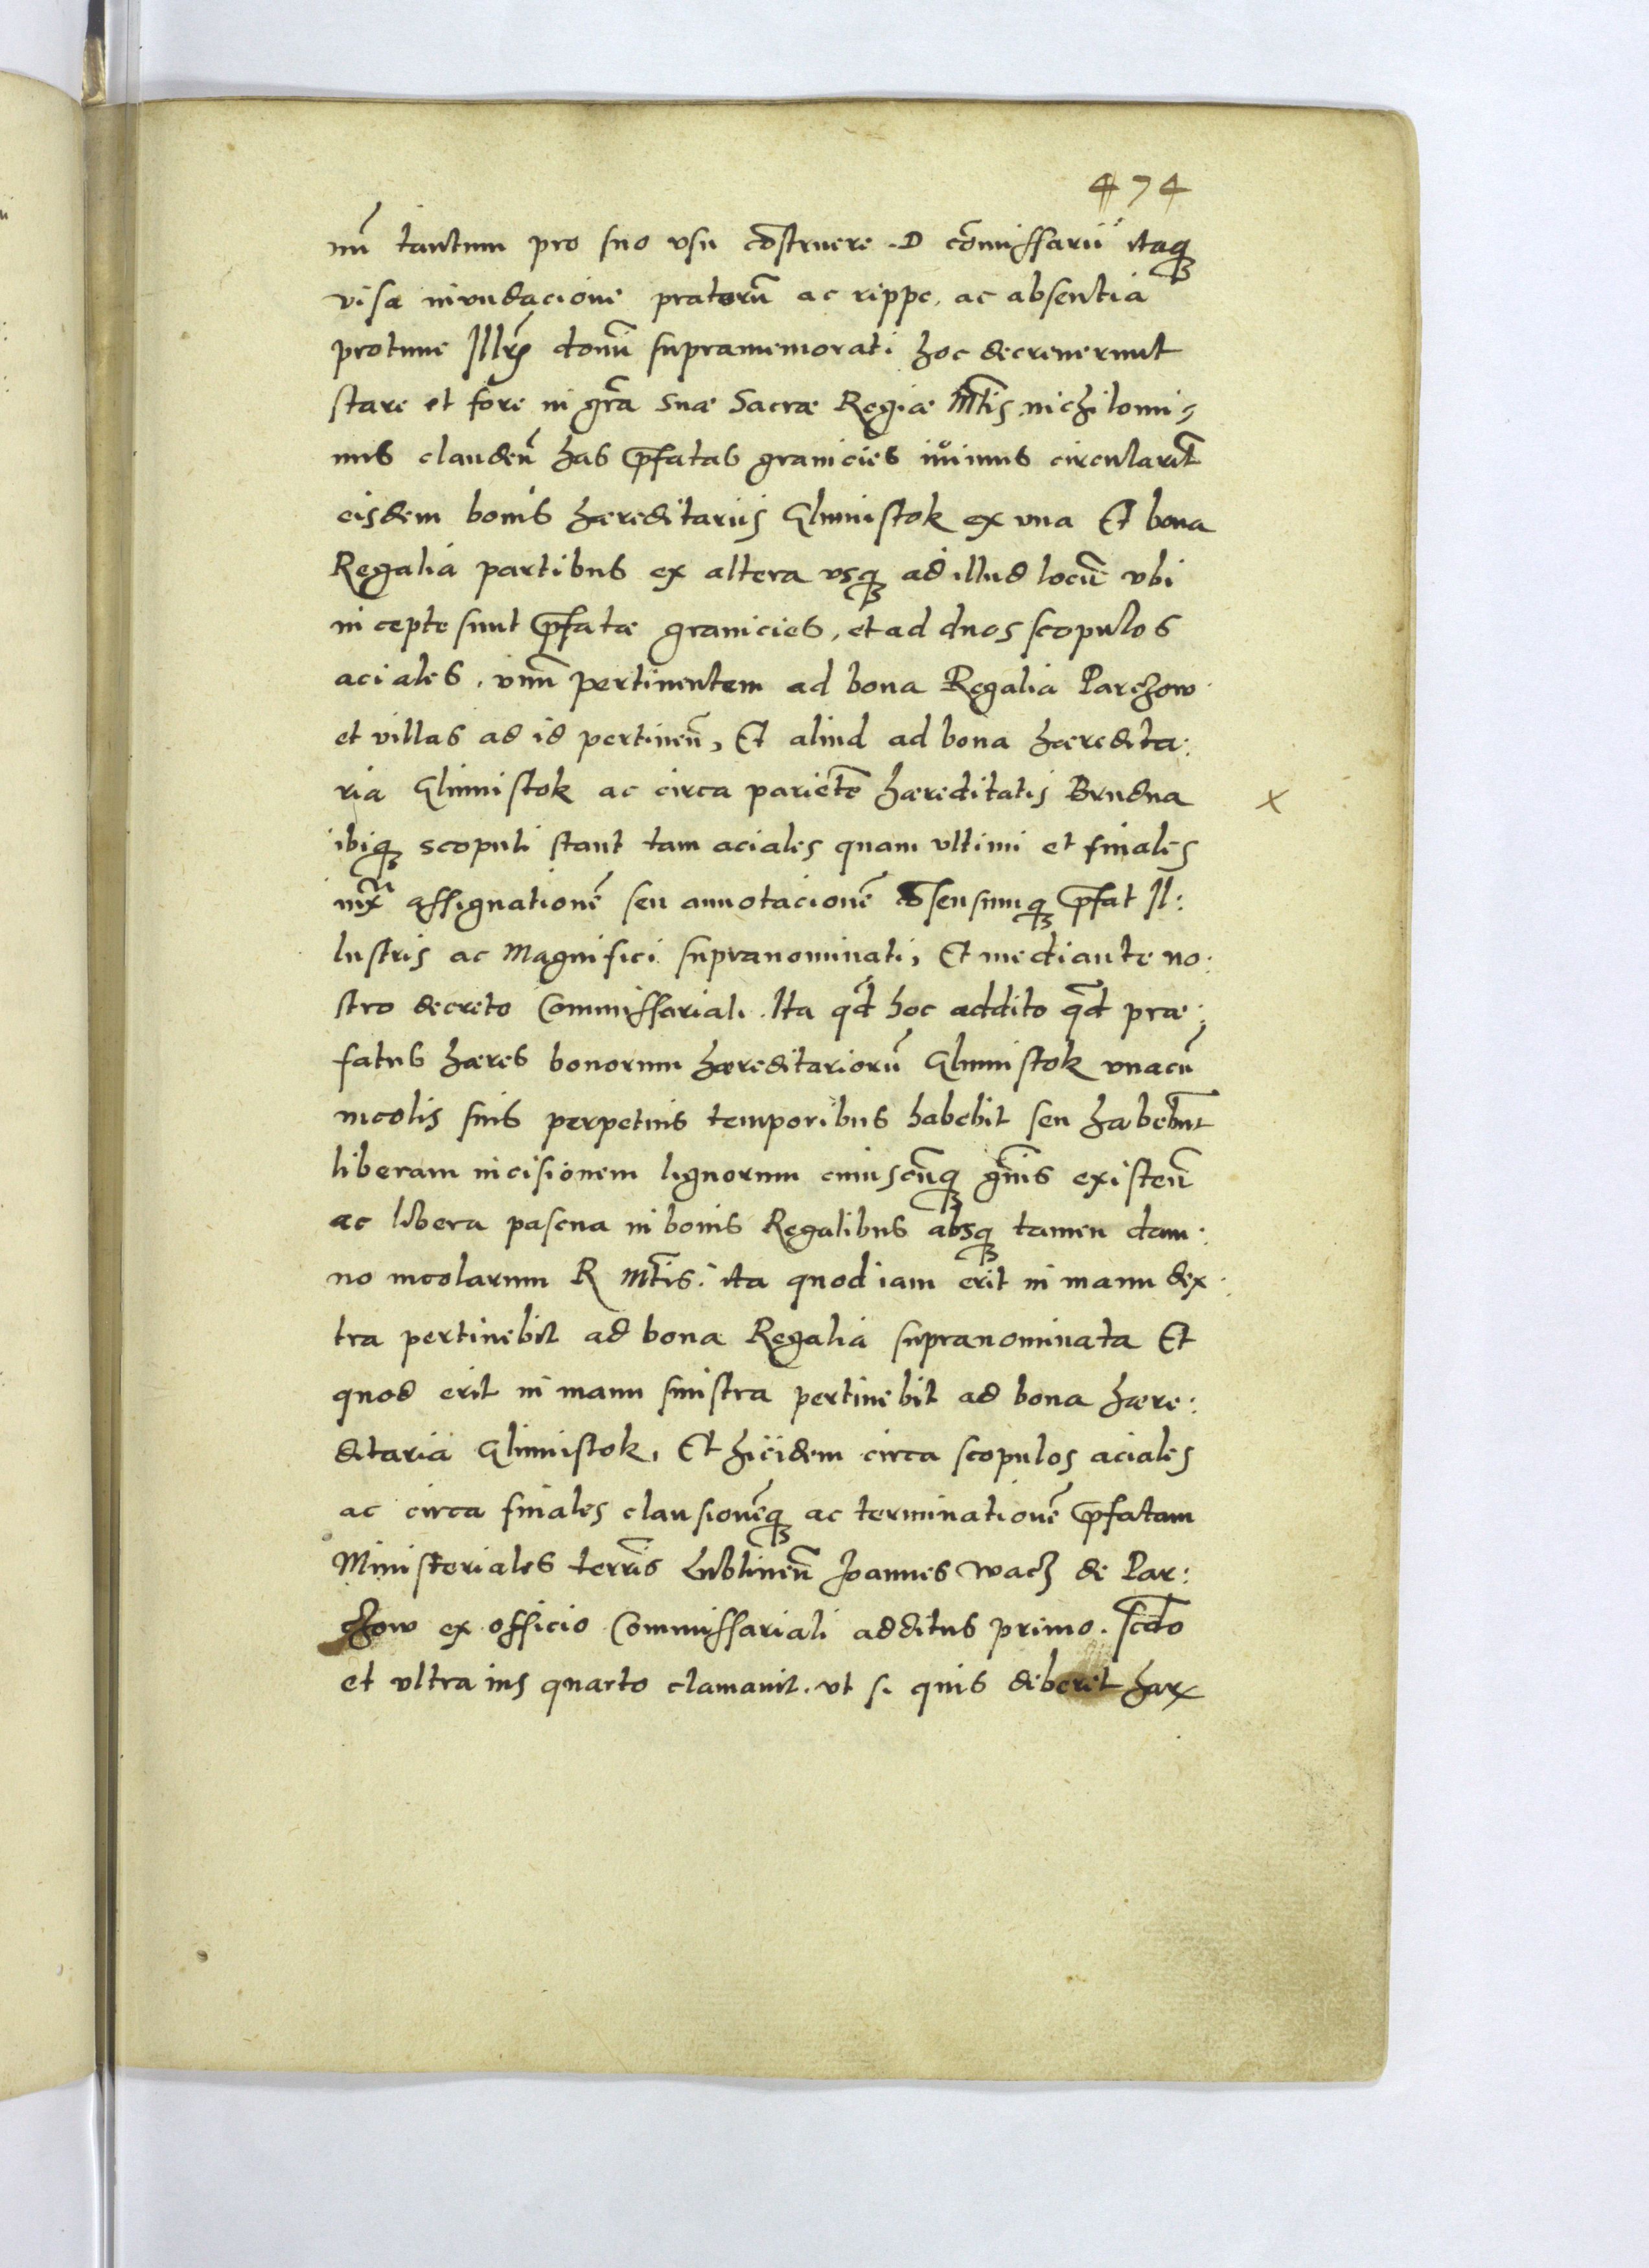 474
nũ tantum pro suo vsu cõstruere. D com̃issarii itaq̃
visa inundacione pratorũ ac rippe, ac absentia
protunc Illr̃ domĩ supramemorati hoc decreuerunt
stare et fore in gr̃a suæ Sacræ Regiæ M̃tis nichilomi⸗
nus clauden̄ has p̃fatas granicies iuimus circularit̃
eisdem bonis hæreditariis Glinnistok ex vna Et bona
Regalia partibus ex altera vsq̃ ad illud locũ vbi
incepte sunt p̃fatæ granicies, et ad duos scopulos
aciales, vnũ pertinentem ad bona Regalia Parchow
et villas ad id pertinen̄, Et aliud ad bona hæredita:
ria Glinnistok ac circa pariẽte hæreditatis Brudna x
ibiq̃ scopuli stant tam aciales quam vltimi et finales
iuxª assignationẽ seu annotacionẽ cõsensumq̃ p̃fat Il:
lustris ac Magnifici supranominati, Et mediante no:
stro decreto Commissariali. Ita qd̃ hoc addito qd̃ præ:
fatus hæres bonorum hæreditariorũ Glinnistok vnacũ
incolis suis perpetuis temporibus habebit seu habebũt
liberam incisionem lignorum cuiuscũq̃ gñis existen̄
ac libera pascua in bonis Regalibus absq̃ tamen dam:
no incolarum R M̃tis: ita quod iam erit in manu dex:
tra pertinebit ad bona Regalia supranominata Et
quod erit in manu sinistra pertinebit ad bona hære:
ditaria Glinnistok, Et hiidem circa scopulos aciales
ac circa finales clausionẽq̃ ac terminationẽ p̃fatam
Ministeriales terrĩs Lublinen̄ Joannes Wach de Par:
chow ex officio Commissariali additus primo. scd̃o
et vltra ius quarto clamauit. vt si quis deberet harx